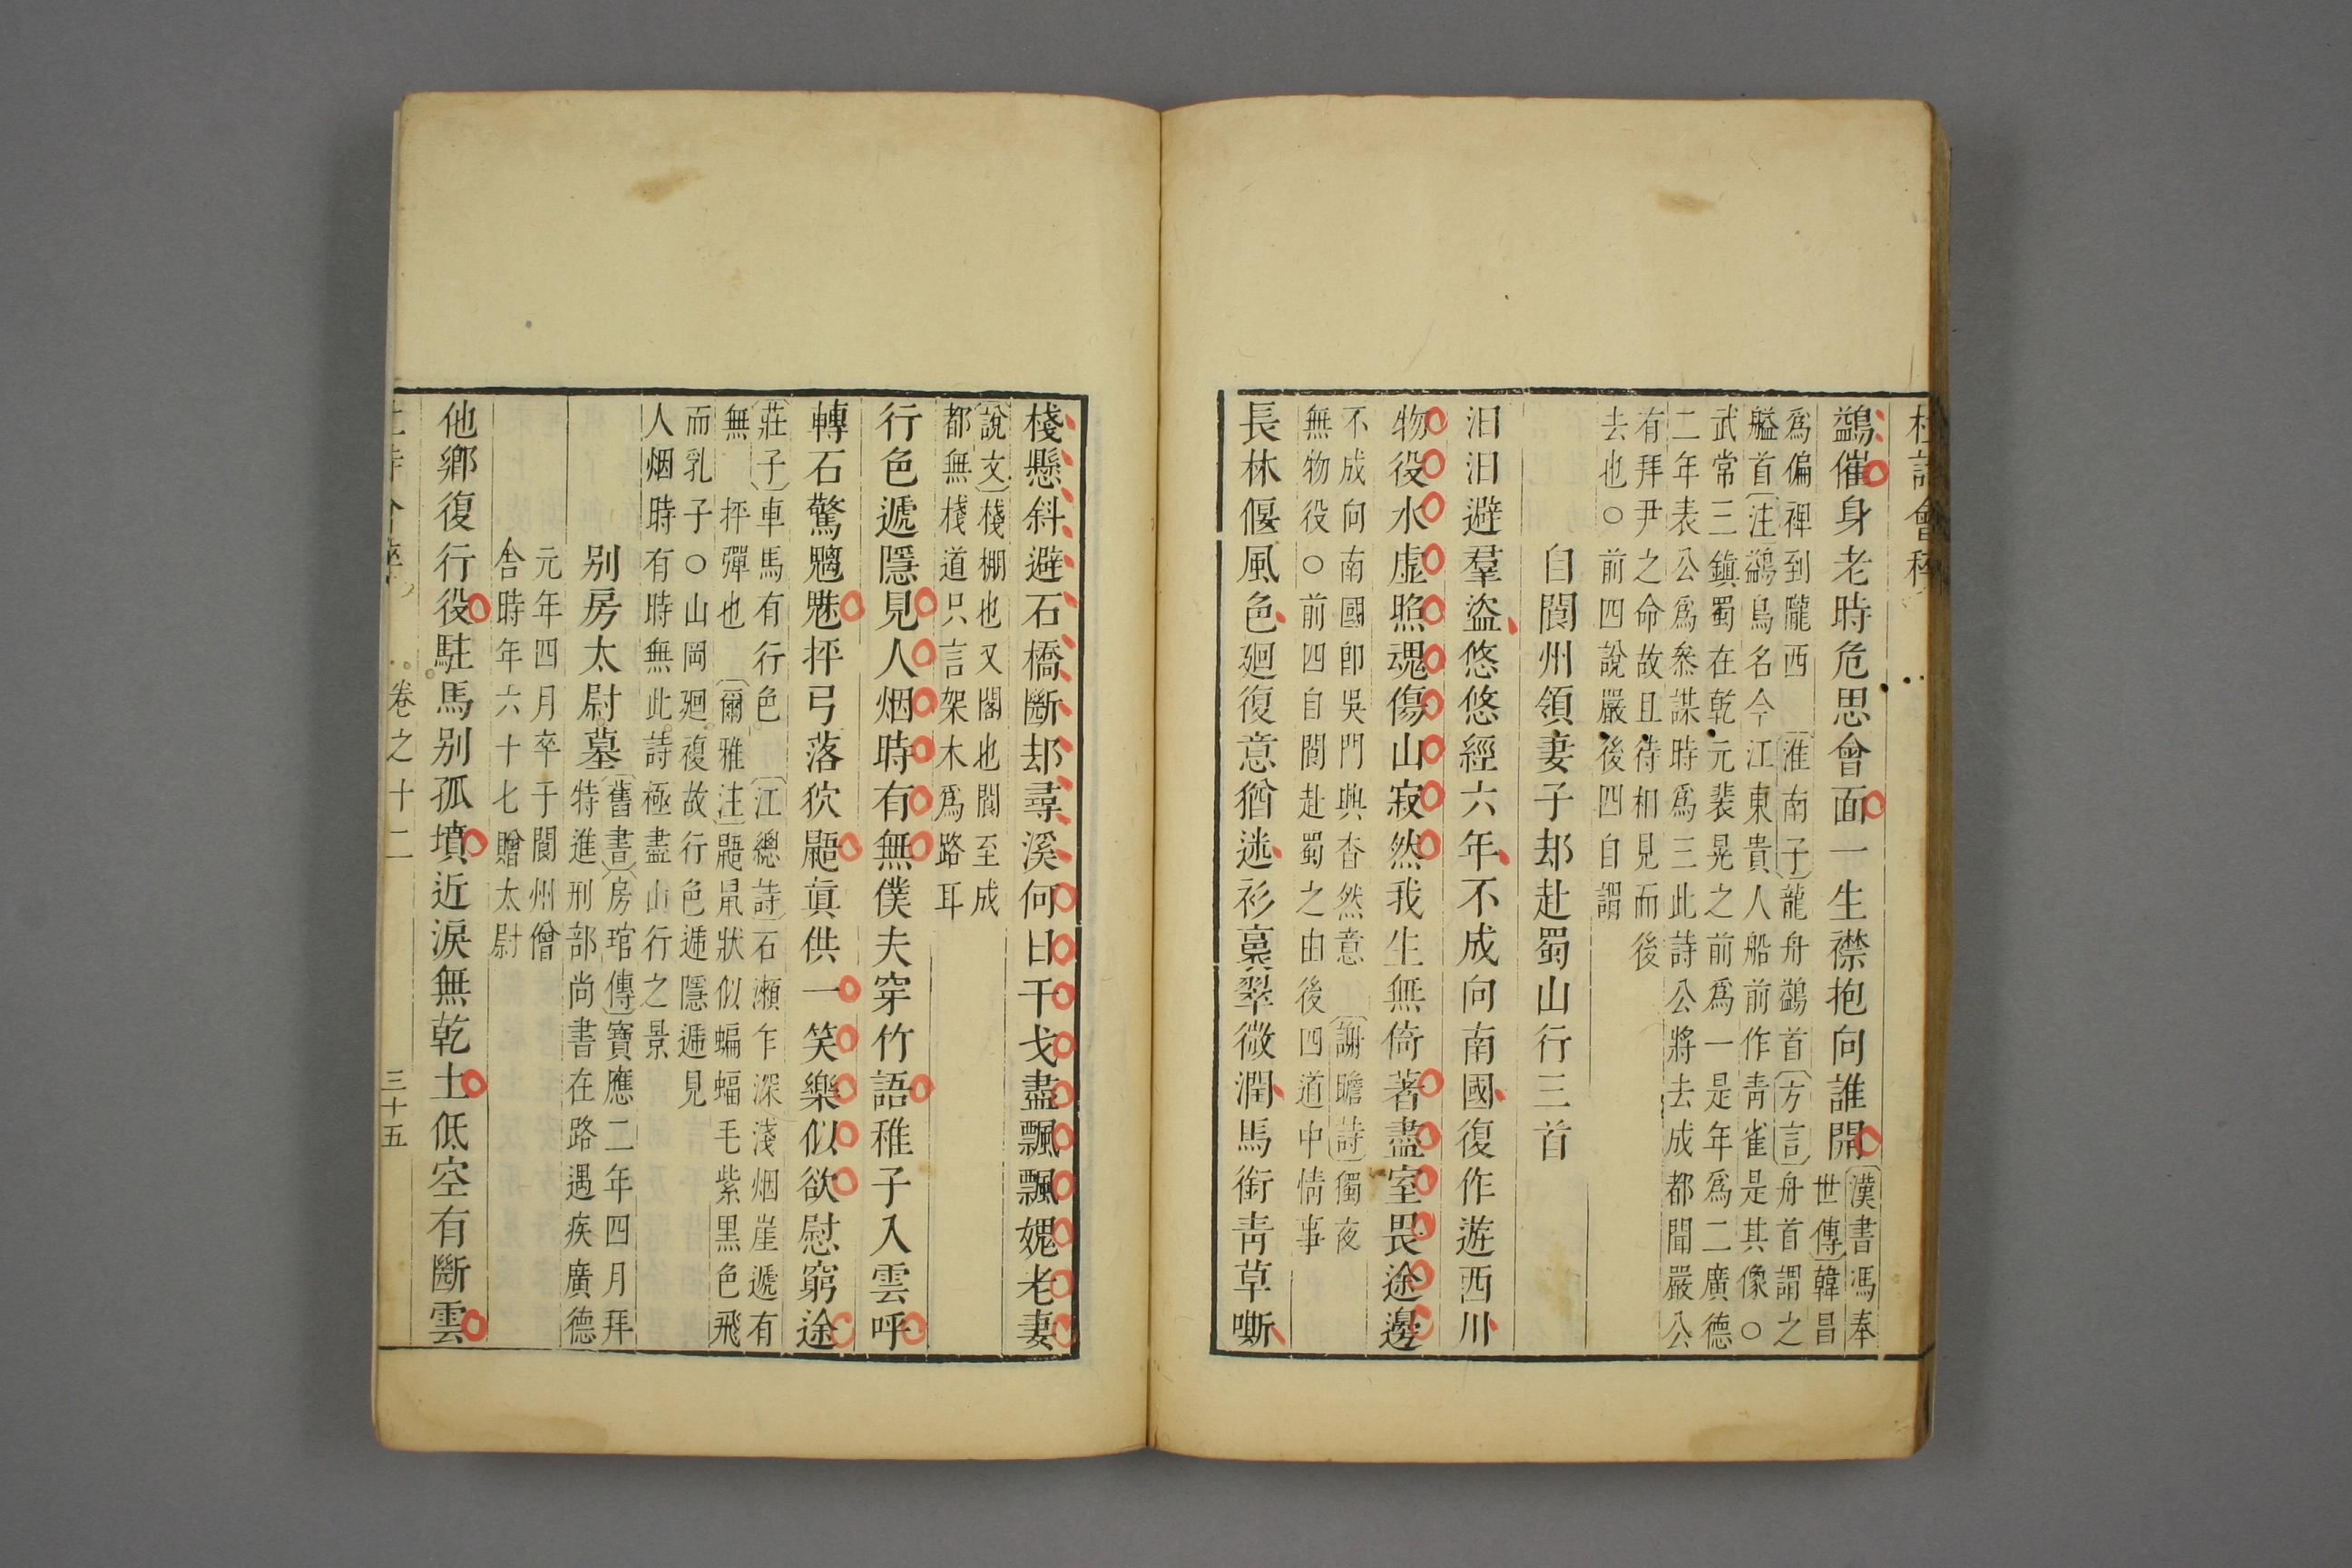 杜詩會稡
鷁催身老時危思會面一生襟抱向誰開
漢書馮奉
世傳韓昌
爲偏裨到隴西 淮南子龍舟鷁首方言舟首謂之
艗首注鷁鳥名今江東貴人船前作青雀是其像○
武常三鎮蜀在乾元裴晃之前爲一是年爲二廣德
二年表公爲叅謀時爲三此詩公將去成都聞嚴公
有拜尹之命故且待相見而後
去也○前四說嚴後四自謂
自閬州領妻子却赴蜀山行三首
汩汩避羣盜悠悠經六年不成向南國復作遊西川
物役水虛照魂傷山寂然我生無倚著盡室畏途邊
不成向南國卽吳門興杳然意 謝瞻詩獨夜
無物役○前四自閬赴蜀之由後四道中情事
長林偃風色廻復意猶迷衫裛翠微潤馬銜青草嘶
棧懸斜避石橋斷却尋溪何日干戈盡飄飄媿老妻
說文棧棚也又閣也閬至成
都無棧道只言架木爲路耳
行色遞隱見人烟時有無僕夫穿竹語稚子入雲呼
轉石驚魑魅抨弓落狖鼯眞供一笑樂似欲慰窮途
莊子車馬有行色 江總詩石瀬乍深淺烟崖遞有
無 抨彈也 爾雅注鼯鼠狀似蝙蝠毛紫黒色飛
而乳子○山岡廻複故行色遞隱遞見
人烟時有時無此詩極盡山行之景
别房太尉墓
舊書房琯傳寶應二年四月拜
特進刑部尚書在路遇疾廣德
元年四月卒于閬州僧
舍時年六十七贈太尉
他鄉復行役駐馬别孤墳近淚無乾土低空有斷雲
卷之十二 三十五